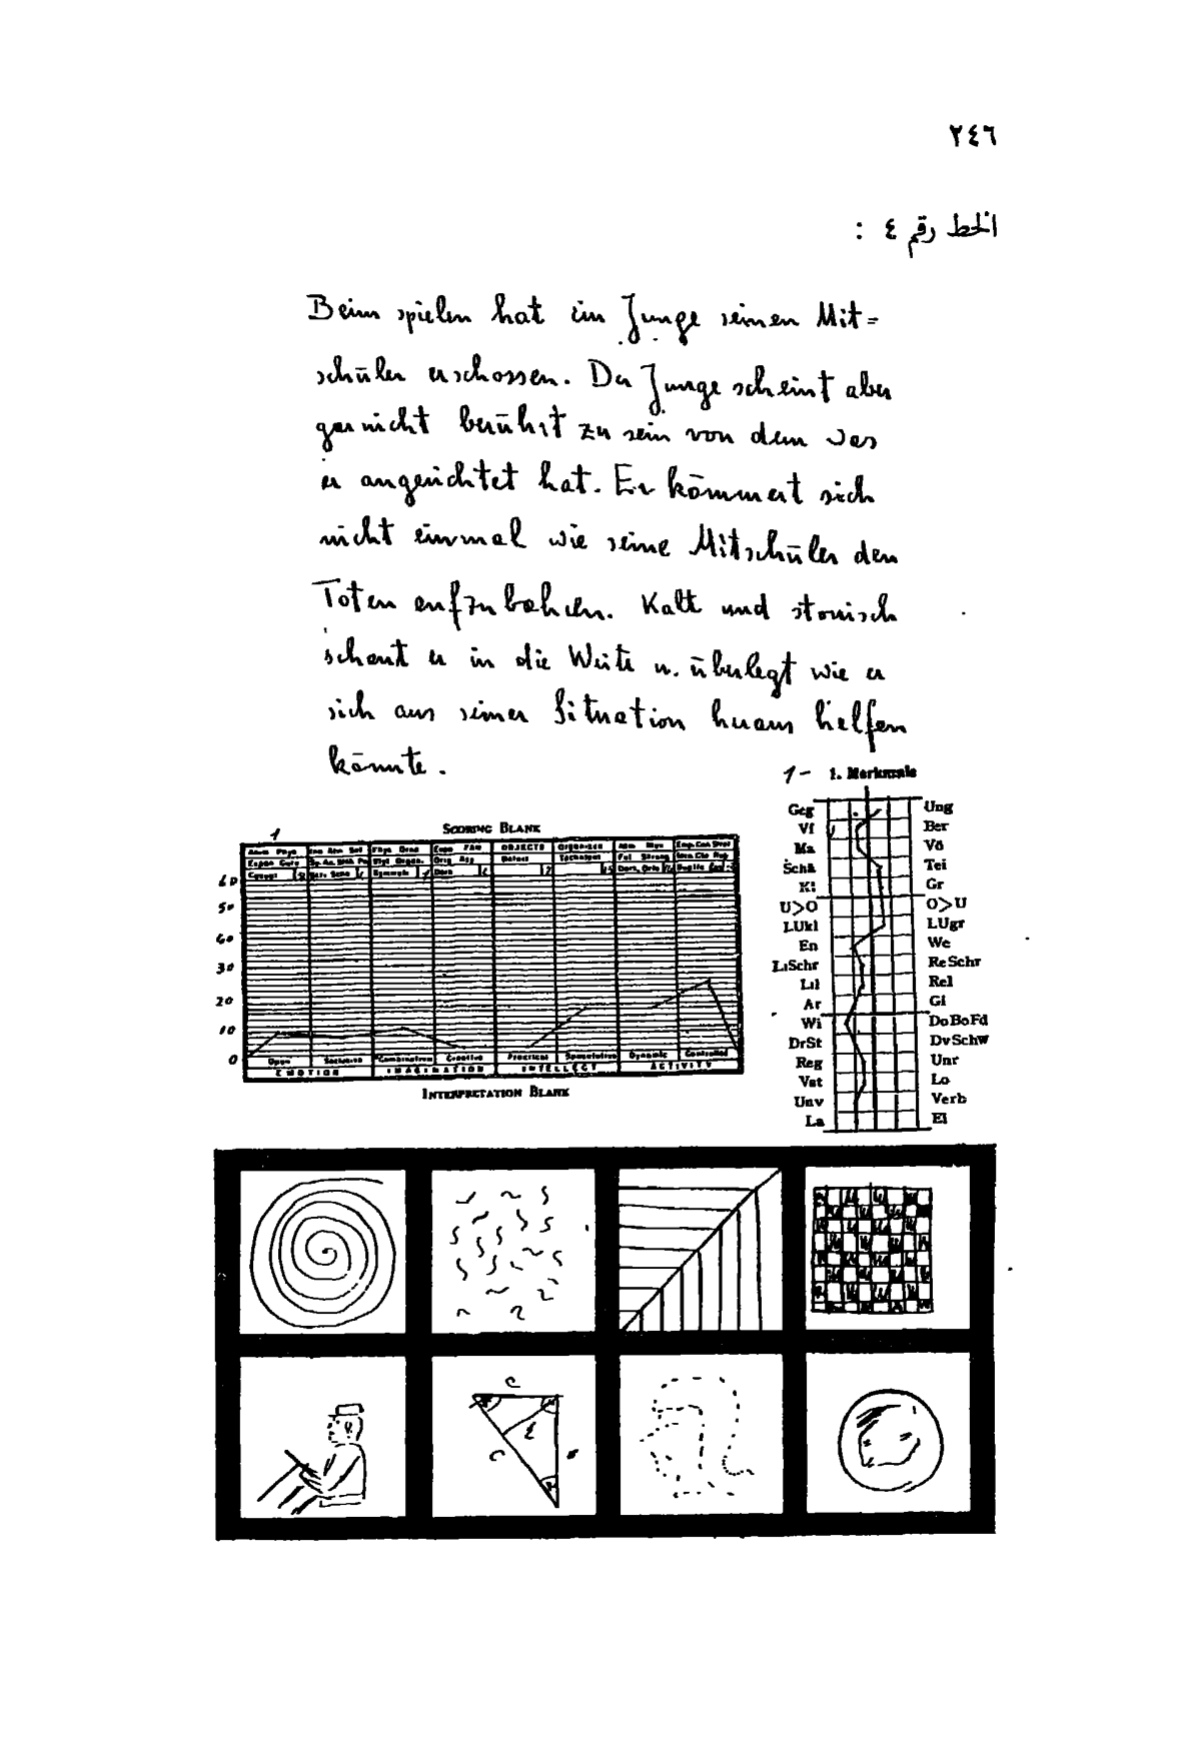 ٢٤٦
الخط رقم ٤ :
Beim spielen hat ein Junge seinen Mit=
schüler erschossen. Der Junge scheint aber
gar nicht berührt zu sein von dem was
er angerichtet hat. Er kömmert sich
nicht einmal wie seine Mitschüler den
Toten aufzubahren. Kalt und stouisch
schaut er in die Weite u. überlegt wie er
sich aus seiner Situation heraus hielfen
könnte.
1 - 1. Merkmale
Geg Ung
Vf Ber
Ma Vö
Schä Tei
Kl Gr
U>O O>U
LUkl LUgr
En We
LiSchr ReSchr
Lil Rel
Ar Gi
Wi DoBoFd
DrSt DvSchw
Reg Unr
Vst Lo
Unv Verb
La Ei
1
SCORING BLANK
OBJECTS
60
50
40
30
20
10
0
Open Seclusive Combinative Creative Practical Speculative Dynamic Controlled
EMOTION IMAGINATION INTELLECT ACTIVITY
INTERPRETATION BLANK